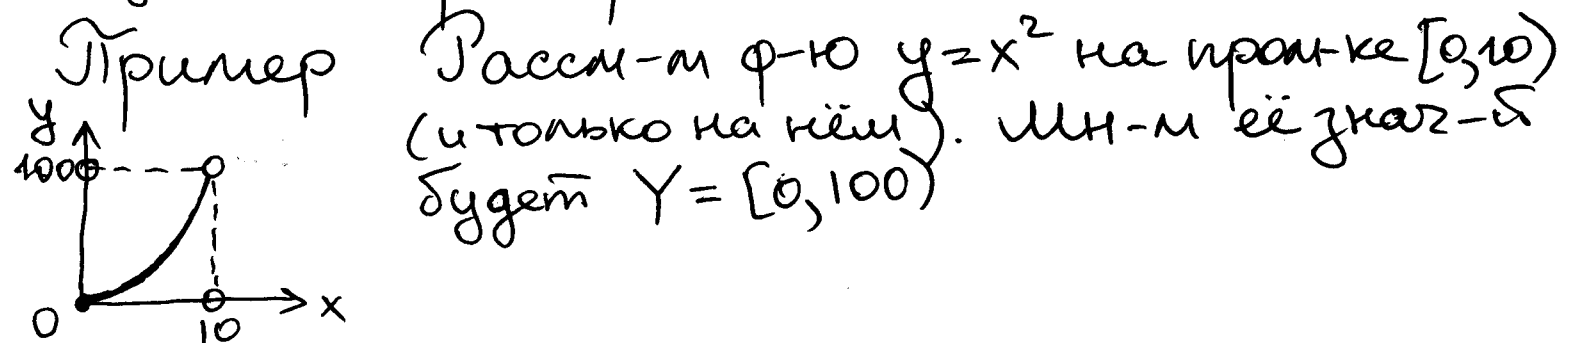 Пример Рассм-м ф-ю y=x² на пром-ке [0,10)
(и только на нём). Мн-м её знач-й
будет Y = [0,100)
y
100
0
10
x